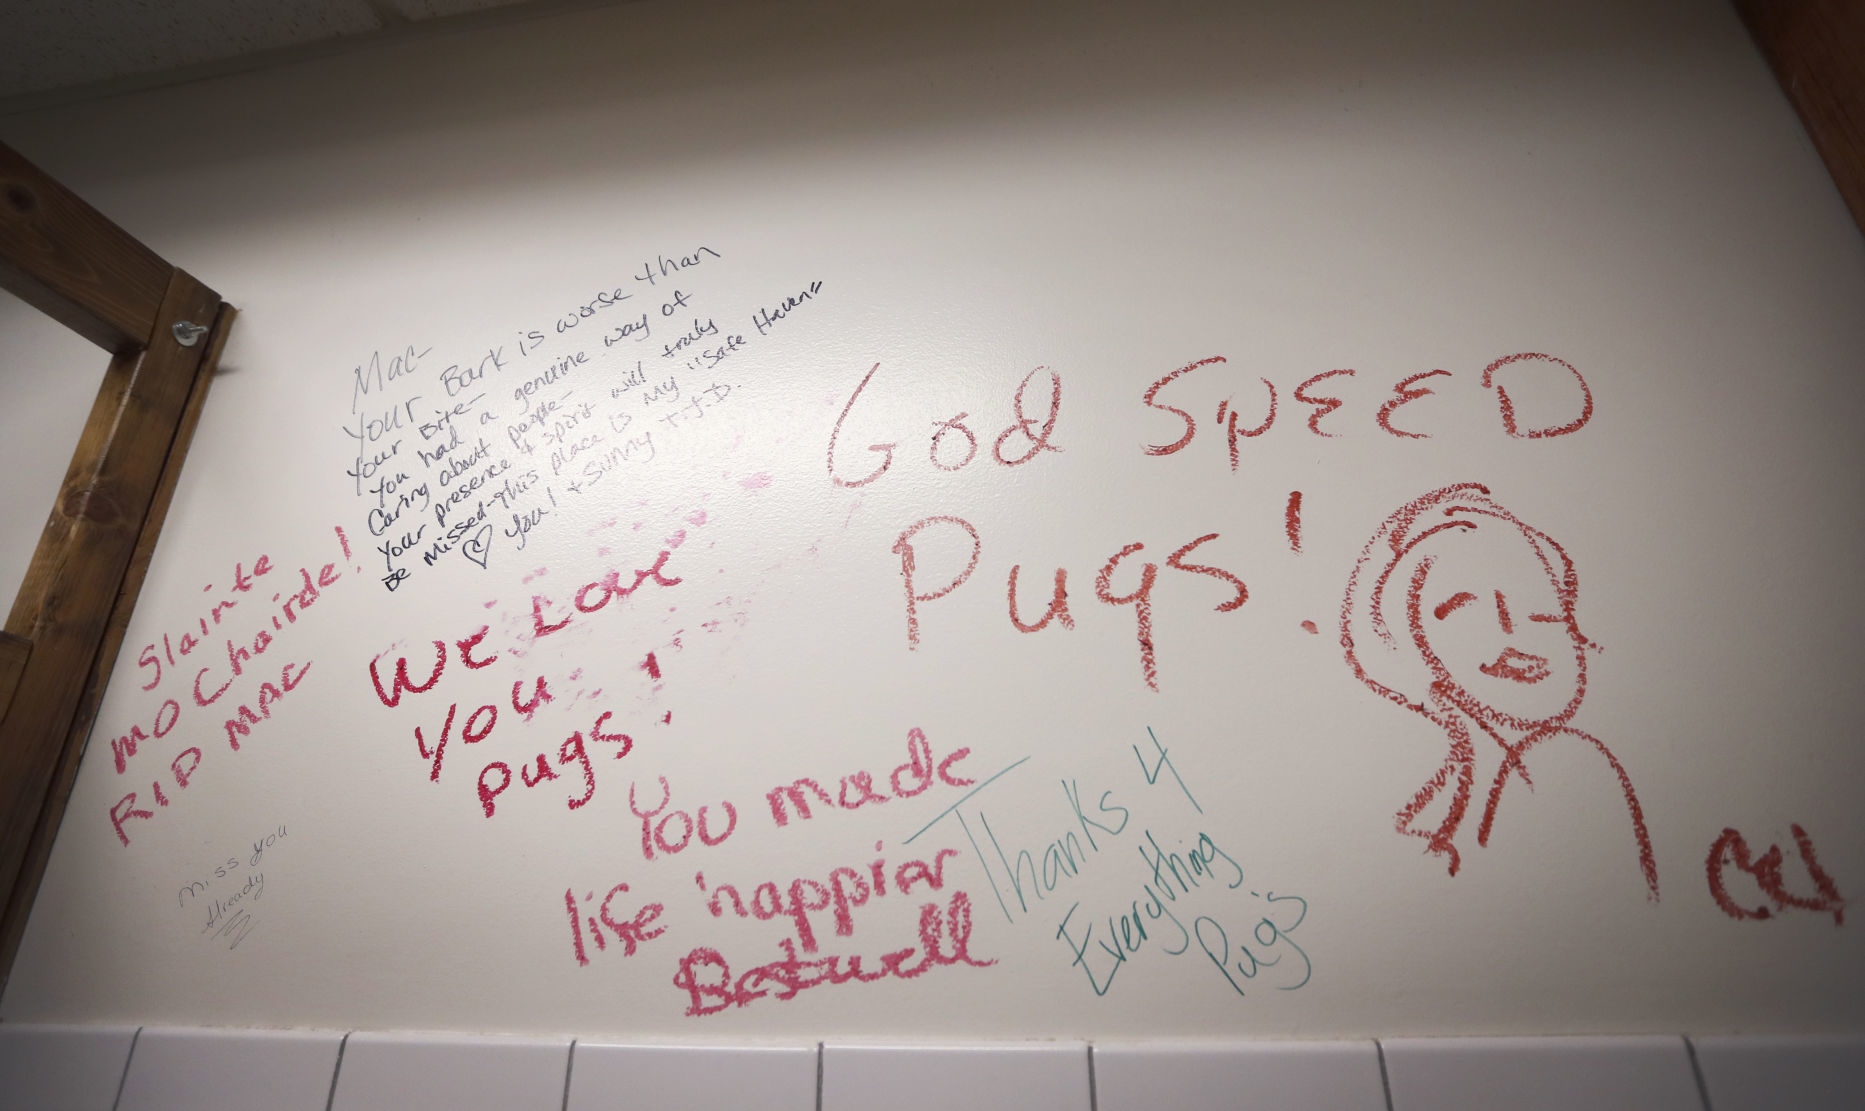 Mac-
Your Bark is worse than
Your Bite-
You had a genuine way of
Caring about people-
Your presence & spirit will truly
Be Missed-This place is My "Safe Haven"
♡ you! + Sunny T.J.D.
Slainte
mo Chairde!
RIP MAC
Miss you
Already
We Love
You
Pugs!
God SpEED
Pugs!
You made
life happier
Bestwell
Thanks 4
Everything
Pug's